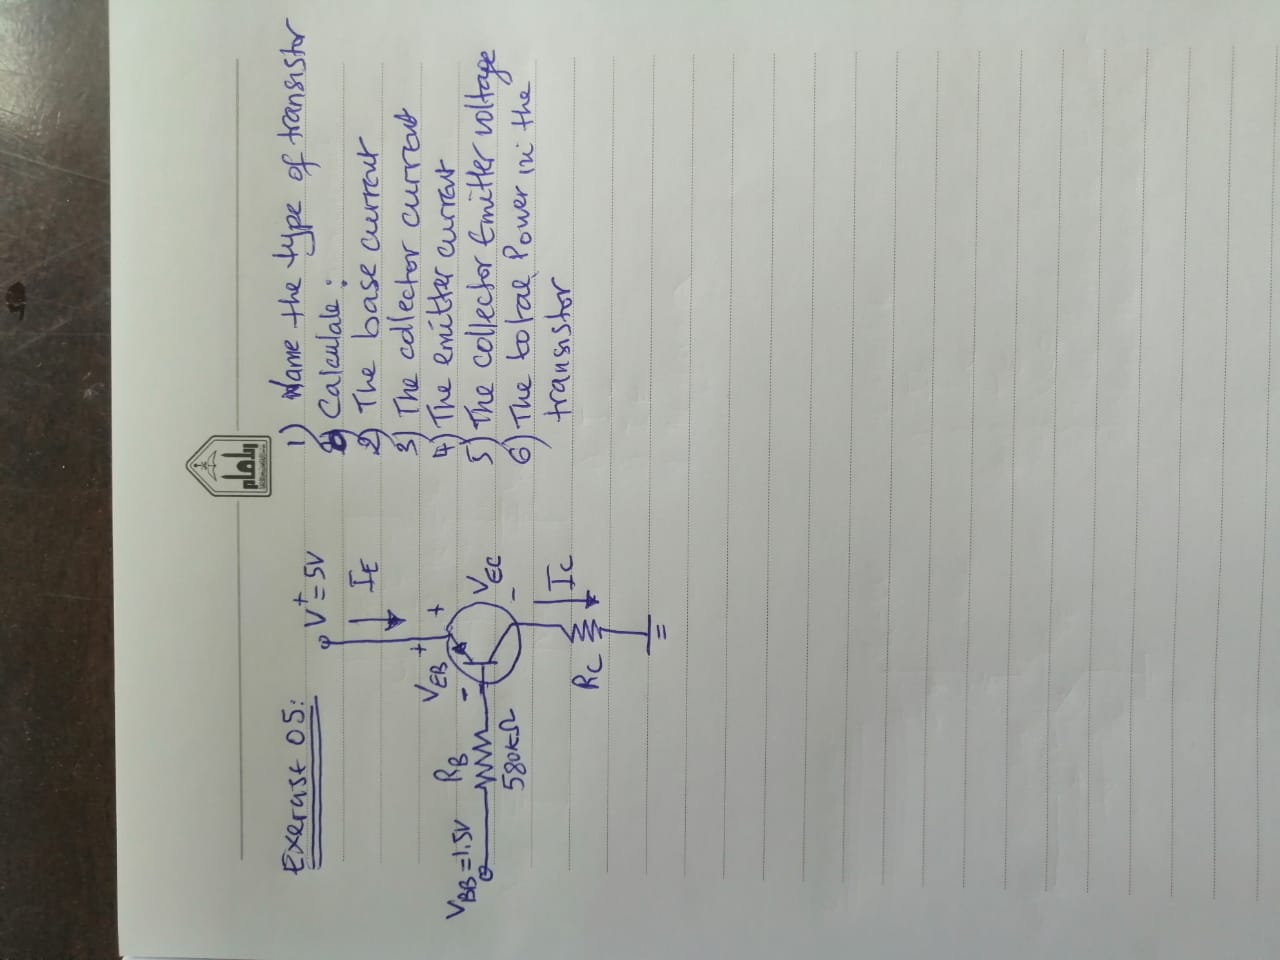 Exercise 05:
V⁺=5V
IE
VEB
+
+
-
VBB=1.5V
RB
580kΩ
VEC
-
IC
RC
1) Name the type of transistor
Calculate :
2) The base current
3) The collector current
4) The emitter current
5) The collector Emitter voltage
6) The total Power in the
transistor